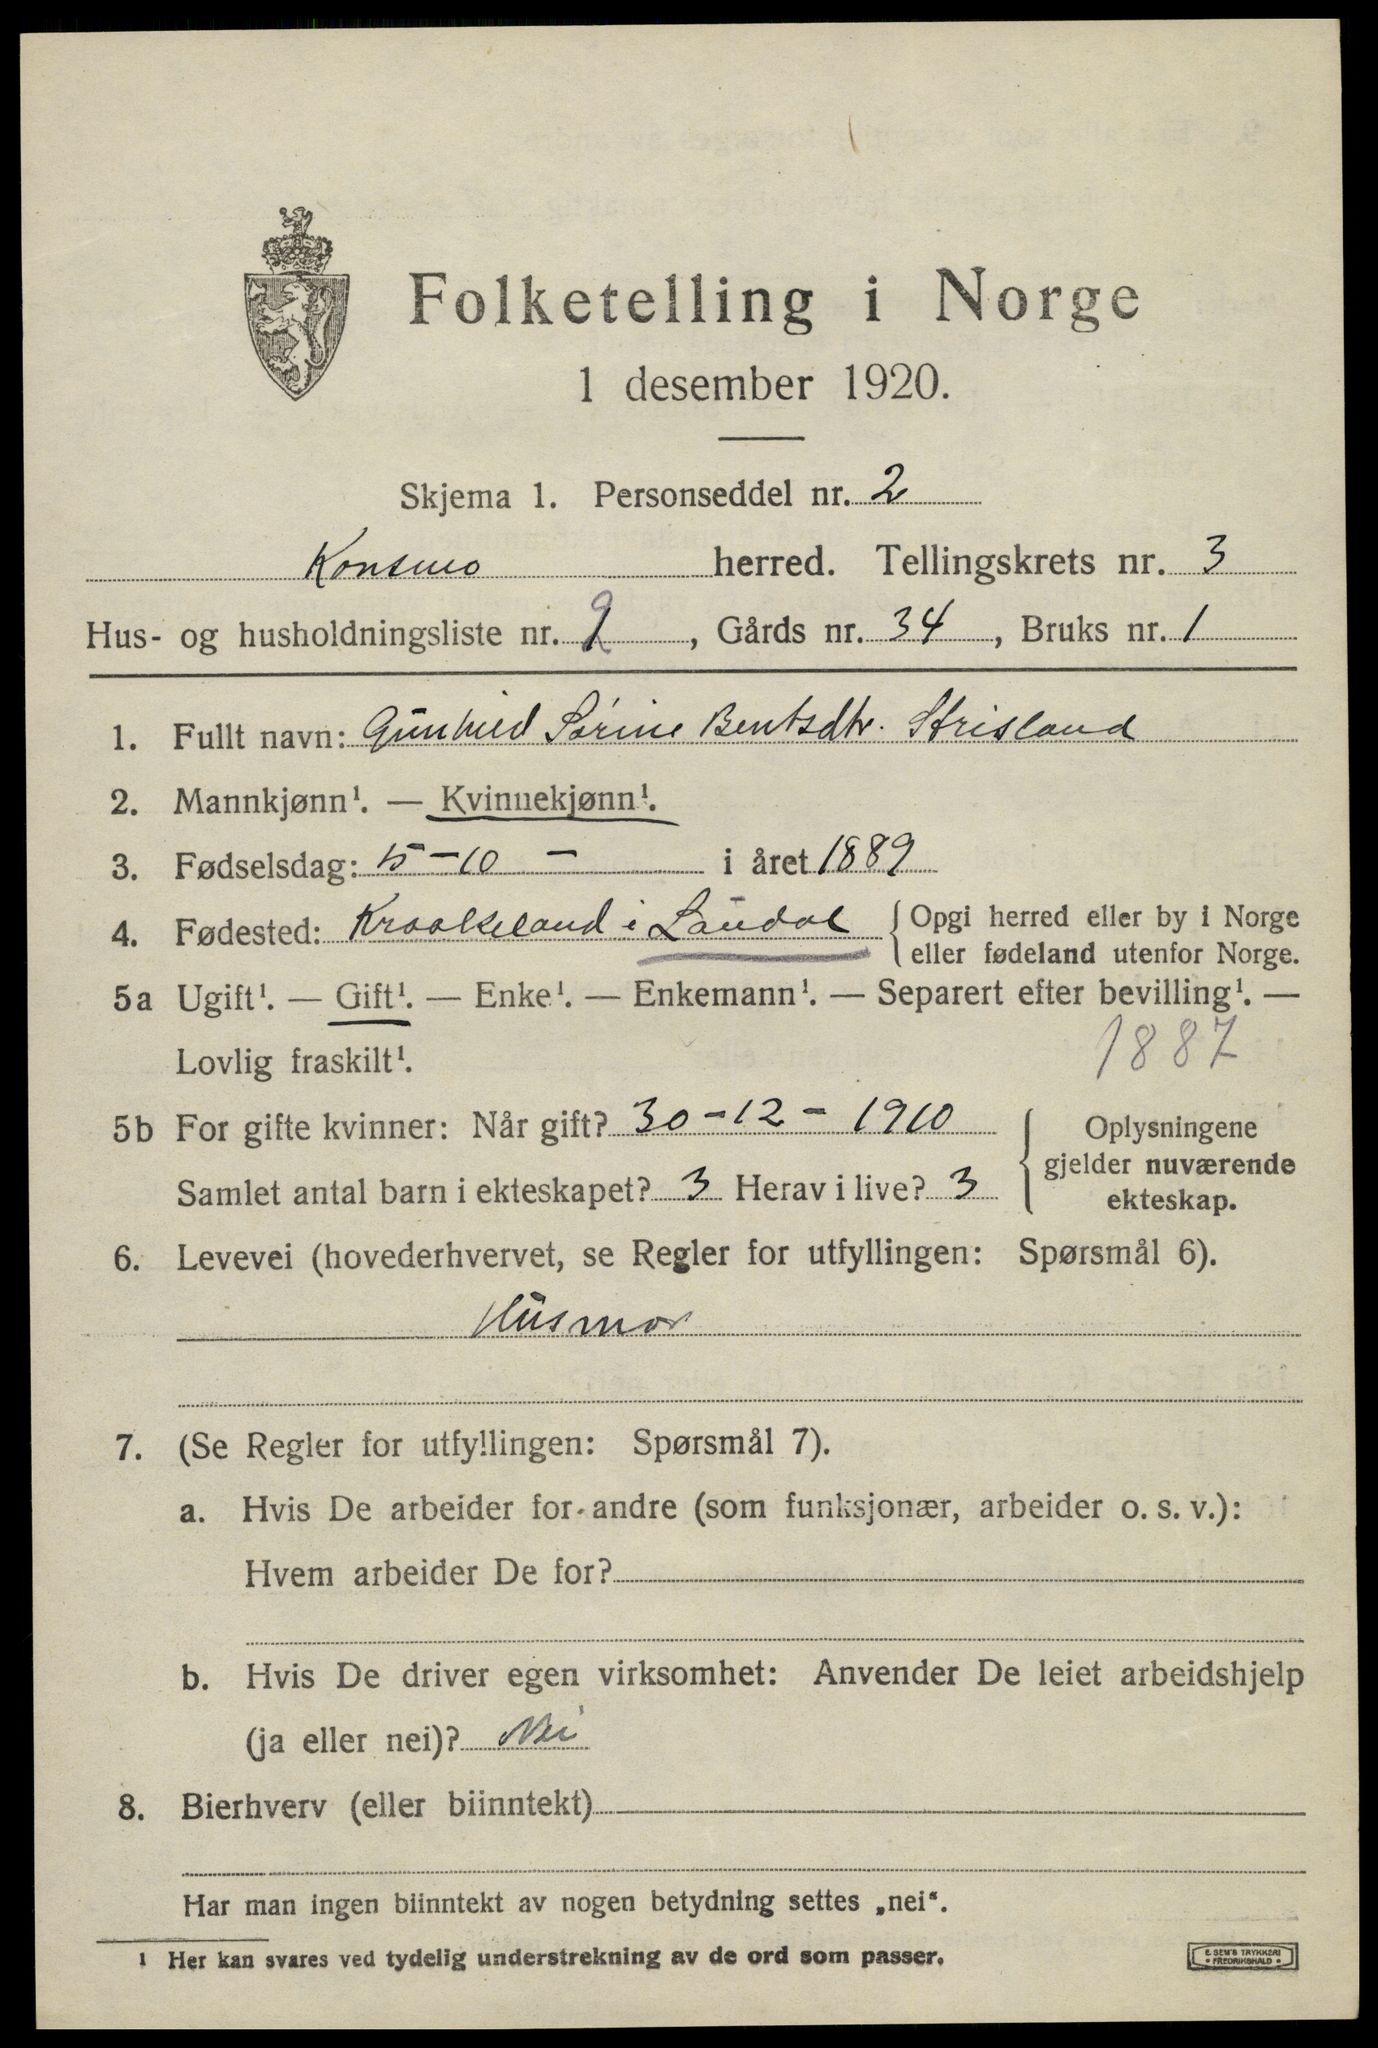 Folketelling i Norge
1 desember 1920.
Skjema 1. Personseddel nr. 2
Konsmo herred. Tellingskrets nr. 3
Hus- og husholdningsliste nr. 9, Gårds nr. 34, Bruks nr. 1
1. Fullt navn: Gunhild Sørine Bentsdtr. Strisland
2. Mannkjønn¹. — Kvinnekjønn¹.
3. Fødselsdag: 15-10 - i året 1889
4. Fødested: Kraakeland i Laudal { Opgi herred eller by i Norge
eller fødeland utenfor Norge.
5a Ugift¹. — Gift¹. — Enke¹. — Enkemann¹. — Separert efter bevilling¹. —
Lovlig fraskilt¹. 1887
5b For gifte kvinner: Når gift? 30-12-1910
Samlet antal barn i ekteskapet? 3 Herav i live? 3
{ Oplysningene
gjelder nuværende
ekteskap.
6. Levevei (hovederhvervet, se Regler for utfyllingen: Spørsmål 6).
Husmor
7. (Se Regler for utfyllingen: Spørsmål 7).
a. Hvis De arbeider for andre (som funksjonær, arbeider o. s. v.):
Hvem arbeider De for?
b. Hvis De driver egen virksomhet: Anvender De leiet arbeidshjelp
(ja eller nei)? Nei
8. Bierhverv (eller biinntekt)
Har man ingen biinntekt av nogen betydning settes „nei“.
1 Her kan svares ved tydelig understrekning av de ord som passer.
E. SEM'S TRYKKERI
• FREDRIKSHALD •